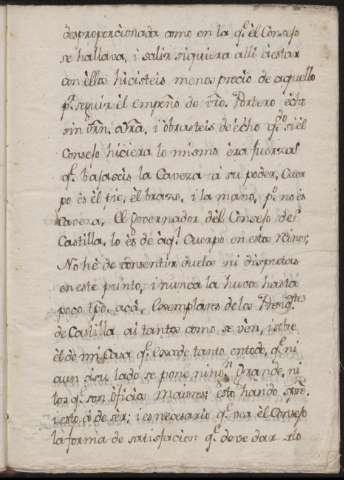 desproporcionada como en la q.e el Consejo
se hallava, i salir siquiera alli a estar
con ellos hicisteis menos precio de aquello
p.r seguir el empeño de vro. Portero, echo
sin orn. vra. i obrasteis de echo q.e si el
Consejo hiciera lo mismo era fuerza
q.e bajaseis la Caveza a su poder, Cuer
po es el pie, el brazo, i la mano, p.o no es
Caveza. El Governador del Consejo de
Castilla, lo es de aq.l Cuerpo en estos Reinos,
No hé de consentir duelos ni disputas
en este punto, i nunca la huvo hasta
poco tpo. acà, Exemplares de los Presid.tes
de Castilla ai tantos como se vén, i sobre
él de mi Casa q.e excede tanto en todo, q.e ni
aun a su lado se pone ning.n Grande, ni
los q.e son oficios maiores: esto han do
i esto à de ser; i es necesario q.e vea el Consejo
la forma de satisfacion q.e deve dar